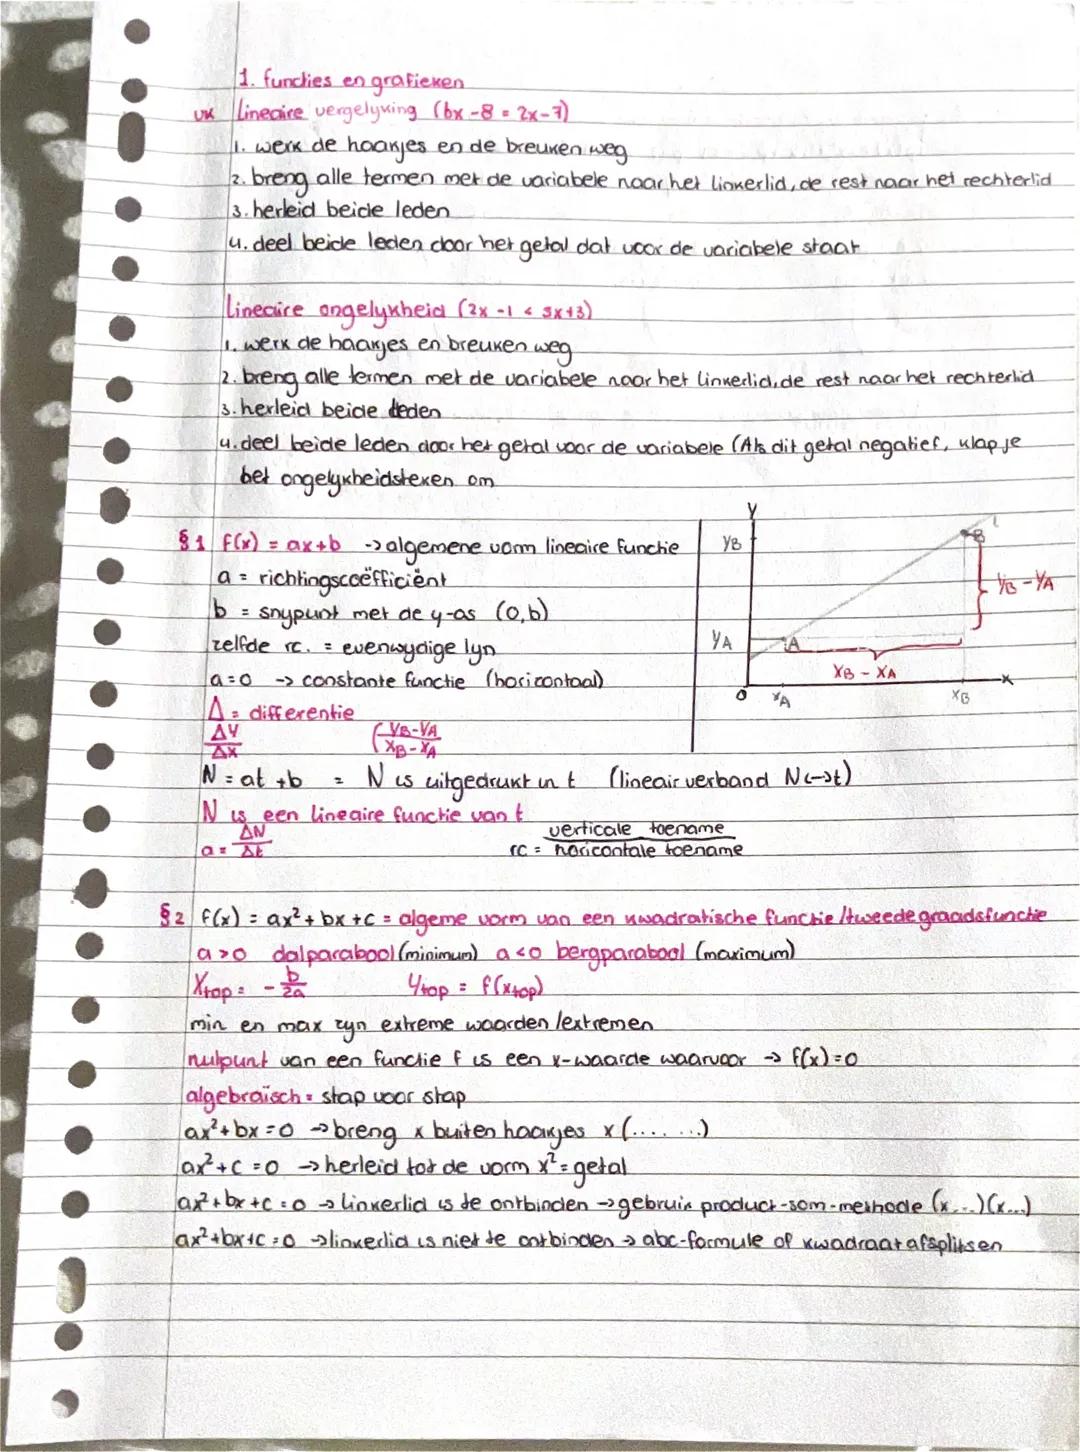 1. functies en grafieken
VK Lineaire vergelyking (6x - 8 = 2x - 7)
1. werk de haakjes en de breuken weg
2. breng alle termen met de variabele naar het linkerlid, de rest naar het rechterlid
3. herleid beide leden
4. deel beide leden door het getal dat voor de variabele staat
Lineaire ongelykheid (2x - 1 < 3x+3)
1. werk de haakjes en breuken weg
2. breng alle termen met de variabele naar het linkerlid, de rest naar het rechterlid
3. herleid beide leden
4. deel beide leden door het getal voor de variabele (Als dit getal negatief, klap je
het ongelykheidsteken om
§1 f(x) = ax+b -> algemene vorm lineaire functie
a = richtingscoëfficiënt
b = snypunt met de y-as (0,b)
zelfde rc. = evenwydige lyn
a=0 -> constante functie (horizontaal)
Δ = differentie
ΔY/ΔX (YB-YA/XB-XA
N = at + b = N is uitgedrukt in t (lineair verband N<->t)
N is een lineaire functie van t
a = ΔN/Δt rc = verticale toename/horicontale toename
y
YB
B
L
YB - YA
YA
A
XB - XA
0
XA
XB
x
§2 f(x) = ax²+bx+c = algeme vorm van een kwadratische functie/tweedegraadsfunctie
a>0 dalparabool (minimum) a<0 bergparabool (maximum)
Xtop = -b/2a Ytop = f(xtop)
min en max zyn extreme waarden/extremen
nulpunt van een functie f is een x-waarde waarvoor -> f(x)=0
algebraïsch = stap voor stap
ax²+bx=0 -> breng x buiten haakjes x(.... ...)
ax²+c=0 -> herleid tot de vorm x²=getal
ax²+bx+c=0 -> linkerlid is te ontbinden -> gebruik product-som-methode (x...)(x...)
ax²+bx+c=0 -> linkerlid is niet te ontbinden -> abc-formule of kwadraatafsplitsen